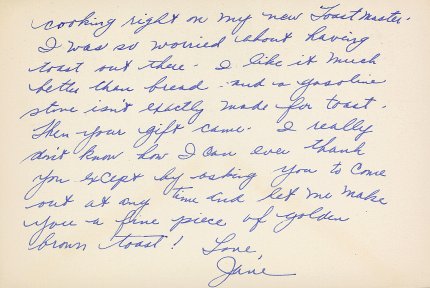 cooking right on my new Toastmaster.
I was so worried about having
toast out there. I like it much
better than bread - and a gasoline
stove isn't exactly made for toast.
Then your gift came. I really
don't know how I can ever thank
you except by asking you to come
out at any time and let me make
you a fine piece of golden
brown toast! Love,
Jane